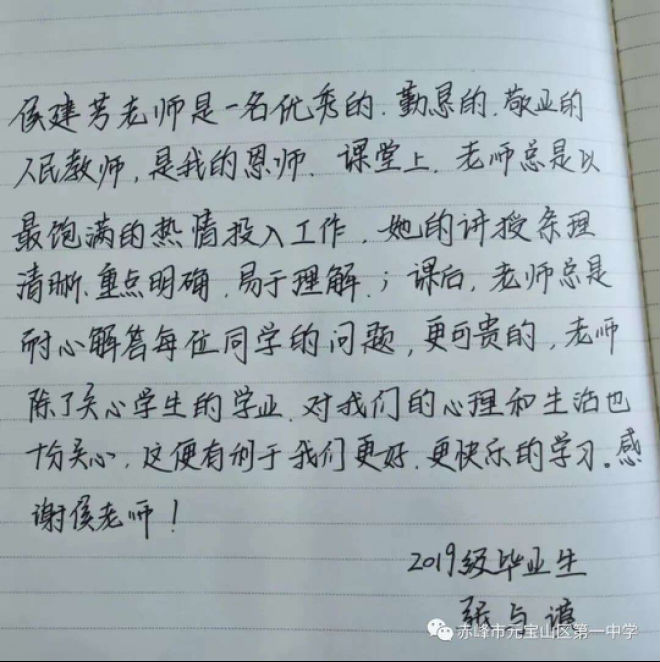 侯建芳老师是一名优秀的、勤恳的、敬业的
人民教师，是我的恩师、课堂上，老师总是以
最饱满的热情投入工作，她的讲授条理
清晰、重点明确、易于理解，；课后，老师总是
耐心解答每位同学的问题，更可贵的，老师
除了关心学生的学业、对我们的心理和生活也
十分关心，这便有利于我们更好、更快乐的学习。感
谢侯老师！
2019级毕业生
张与谊
赤峰市元宝山区第一中学